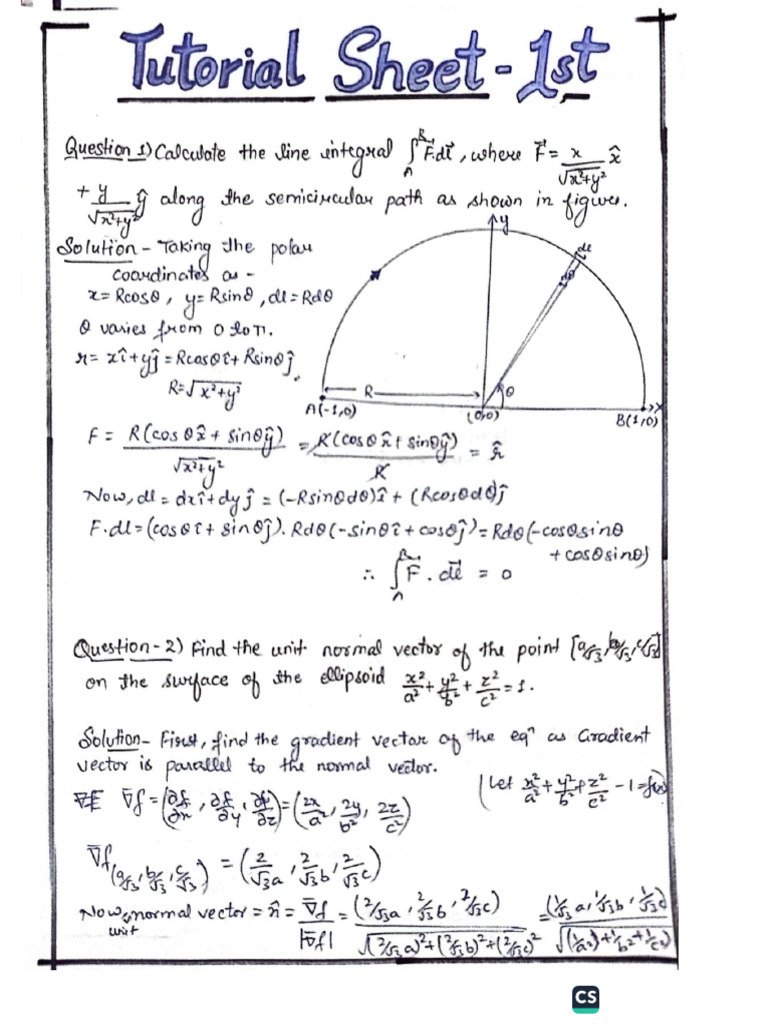 Tutorial Sheet - 1st
Question 1) Calculate the line integral ∫_A^B F⃗.dl⃗, where F⃗ = x/√(x²+y²) x̂
+ y/√(x²+y²) ŷ along the semicircular path as shown in figure.
Solution - Taking the polar
coordinates as -
x = Rcosθ, y = Rsinθ, dl = Rdθ
θ varies from 0 to π.
r = xî + yĵ = Rcosθî + Rsinθĵ.
R = √(x²+y²)
y
dl
dθ
R
θ
A(-1,0)
(0,0)
B(1,0)
x
F = R(cosθx̂ + sinθŷ)/√(x²+y²) = R(cosθx̂ + sinθŷ)/R = r̂
Now, dl = dxî + dyĵ = (-Rsinθdθ)î + (Rcosθdθ)ĵ
F.dl = (cosθî + sinθĵ). Rdθ(-sinθî + cosθĵ) = Rdθ(-cosθsinθ
+ cosθsinθ)
∴ ∫_A^B F⃗.dl⃗ = 0
Question-2) Find the unit normal vector of the point [a/√3, b/√3, c/√3]
on the surface of the ellipsoid x²/a² + y²/b² + z²/c² = 1.
Solution - First, find the gradient vector of the eqⁿ as Gradient
vector is parallel to the normal vector.
(Let x²/a² + y²/b² + z²/c² - 1 = f(x)
∇f = (∂f/∂x, ∂f/∂y, ∂f/∂z) = (2x/a², 2y/b², 2z/c²)
∇f(a/√3, b/√3, c/√3) = (2/√3a, 2/√3b, 2/√3c)
Now, unit normal vector = n̂ = ∇f/|∇f| = (2/√3a, 2/√3b, 2/√3c)/√((2/√3a)²+(2/√3b)²+(2/√3c)²) = (1/√3a, 1/√3b, 1/√3c)/√((1/a²)+1/b²+1/c²)
CS